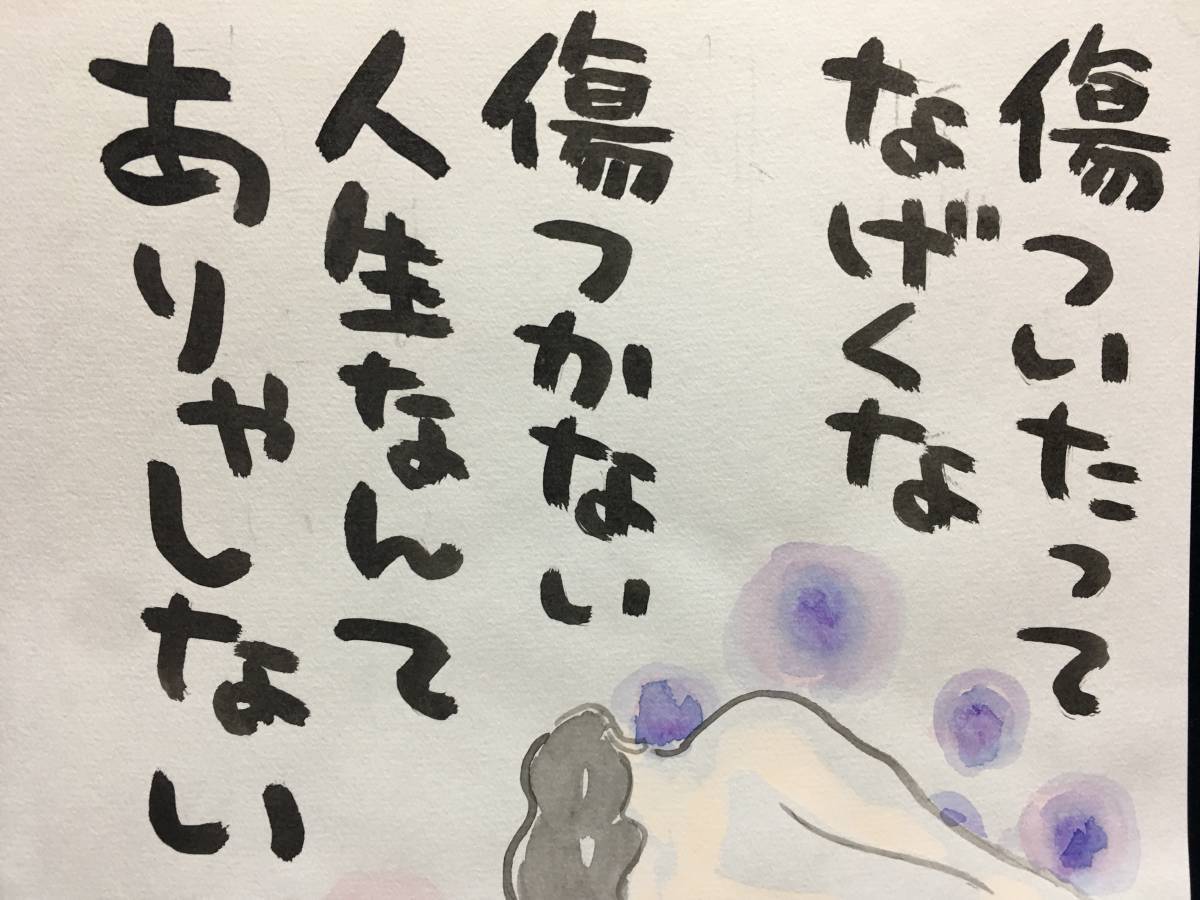 傷ついたって
なげくな
傷つかない
人生なんて
ありゃしない